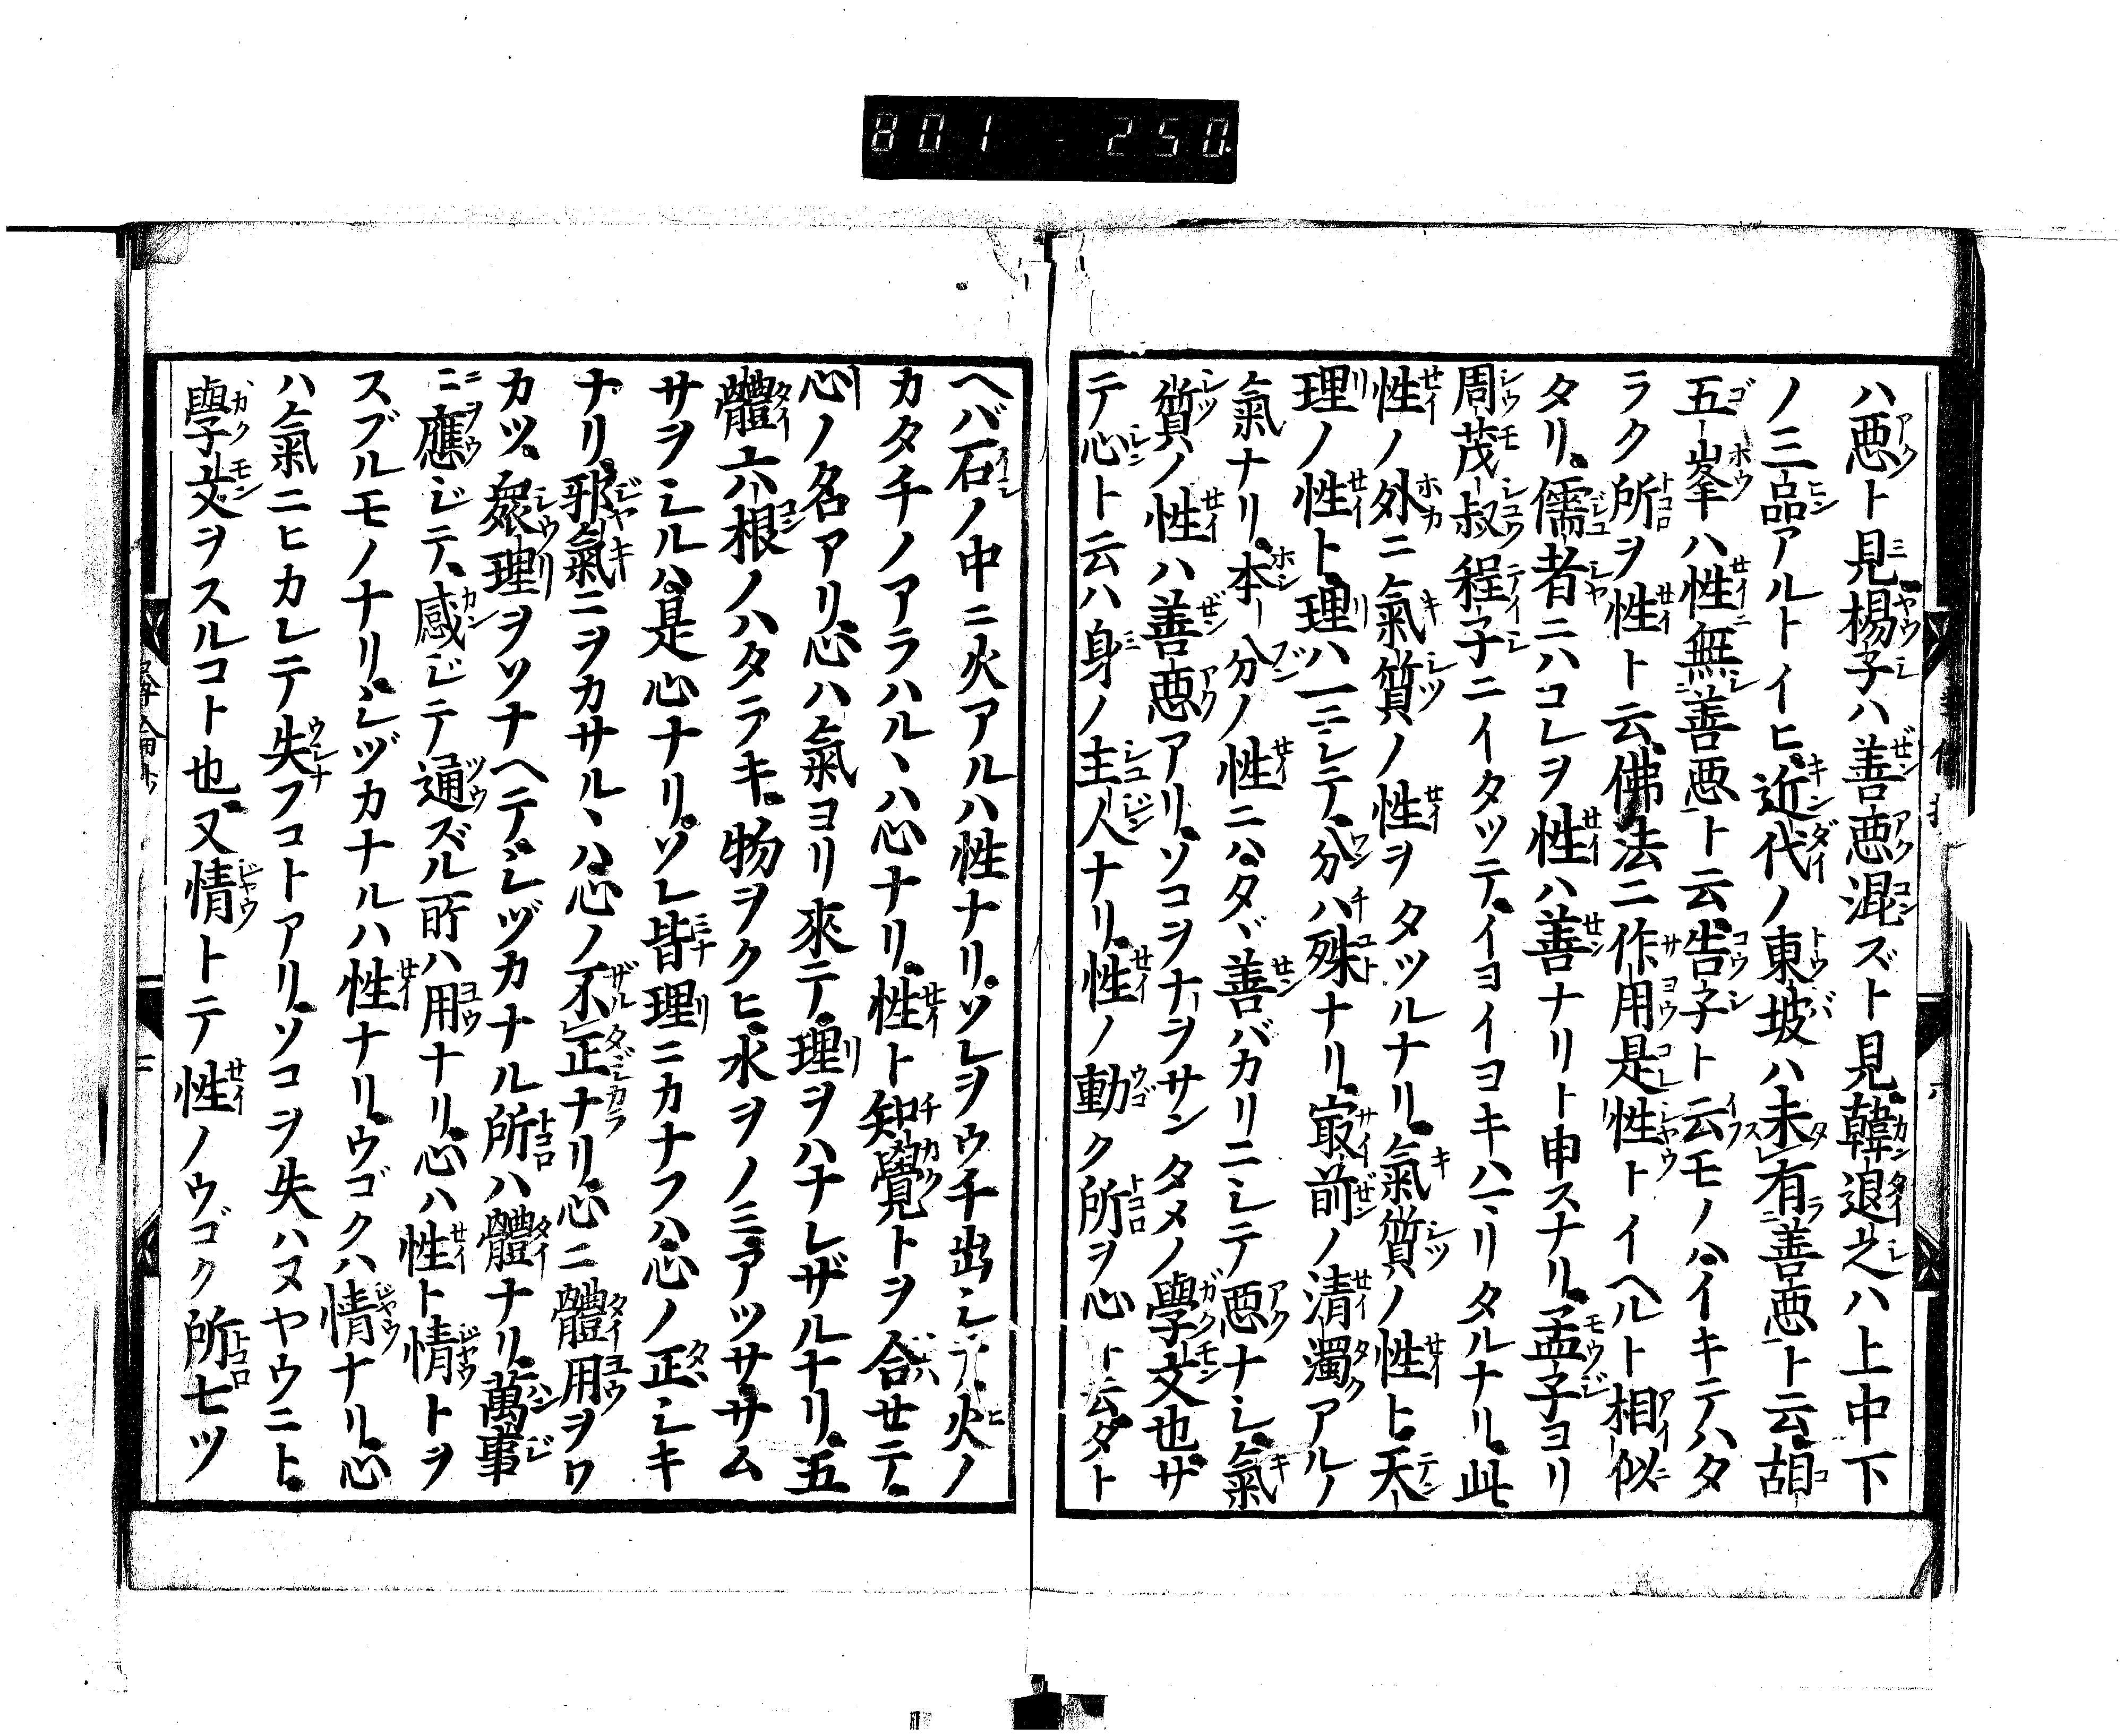 801 - 250.
ハ悪ト見、楊子ハ善悪混ズト見、韓退之ハ上中下
ノ三品アルトイヒ、近代ノ東坡ハ未有善悪ト云、胡
五峯ハ性無善悪ト云、告子ト云モノハ、イキテハタ
ラク所ヲ性ト云、佛法ニ作用是性トイヘルト相似
タリ。儒者ニハコレヲ性ハ善ナリト申スナリ。孟子ヨリ
周茂叔程子ニイタツテ、イヨイヨキハマリタルナリ。此
性ノ外ニ氣質ノ性ヲタツルナリ。氣質ノ性ト天
理ノ性ト、理ハ一ニシテ、分ハ殊ナリ。㝡前ノ清濁アルノ
氣ナリ。本分ノ性ニハ、タヾ善バカリニシテ悪ナシ。氣
質ノ性ハ善悪アリ。ソコヲナヲサンタメノ學文也。サ
テ心ト云ハ身ノ主人ナリ。性ノ動ク所ヲ心ト云。タト
ヘバ石ノ中ニ火アルハ性ナリ。ソレヲウチ出シテ、火ノ
カタチノアラハルヽハ心ナリ。性ト知覺トヲ合セテ、
心ノ名アリ。心ハ氣ヨリ來テ、理ヲハナレザルナリ。五
體六根ノハタラキ、物ヲクヒ、水ヲノミ、アツササム
サヲシルハ、是心ナリ。ソレ皆理ニカナフハ、心ノ正シキ
ナリ。邪氣ニヲカサルヽハ、心ノ不正ナリ。心ニ體用ヲワ
カツ。衆理ヲソナヘテ、シヅカナル所ハ體ナリ。萬事
ニ應ジテ、感ジテ通ズル所ハ用ナリ。心ハ性ト情トヲ
スブルモノナリ。シヅカナルハ性ナリ。ウゴクハ情ナリ。心
ハ氣ニヒカレテ失フコトアリ。ソコヲ失ハヌヤウニト、
學文ヲスルコト也。又情トテ性ノウゴク所七ツ